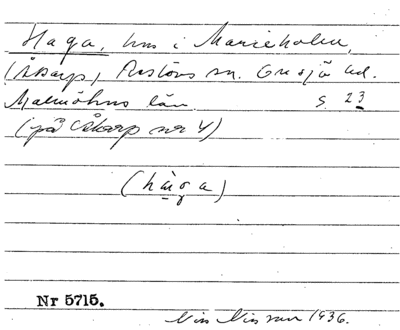 Haga, hus i Marieholm,
(Åkarp) Reslövs sn. Onsjö hd.
Malmöhus län. S. 23
(på Åkarp nr 4)
(haga)
Nr 5715.
Nils Nilsson 1936.